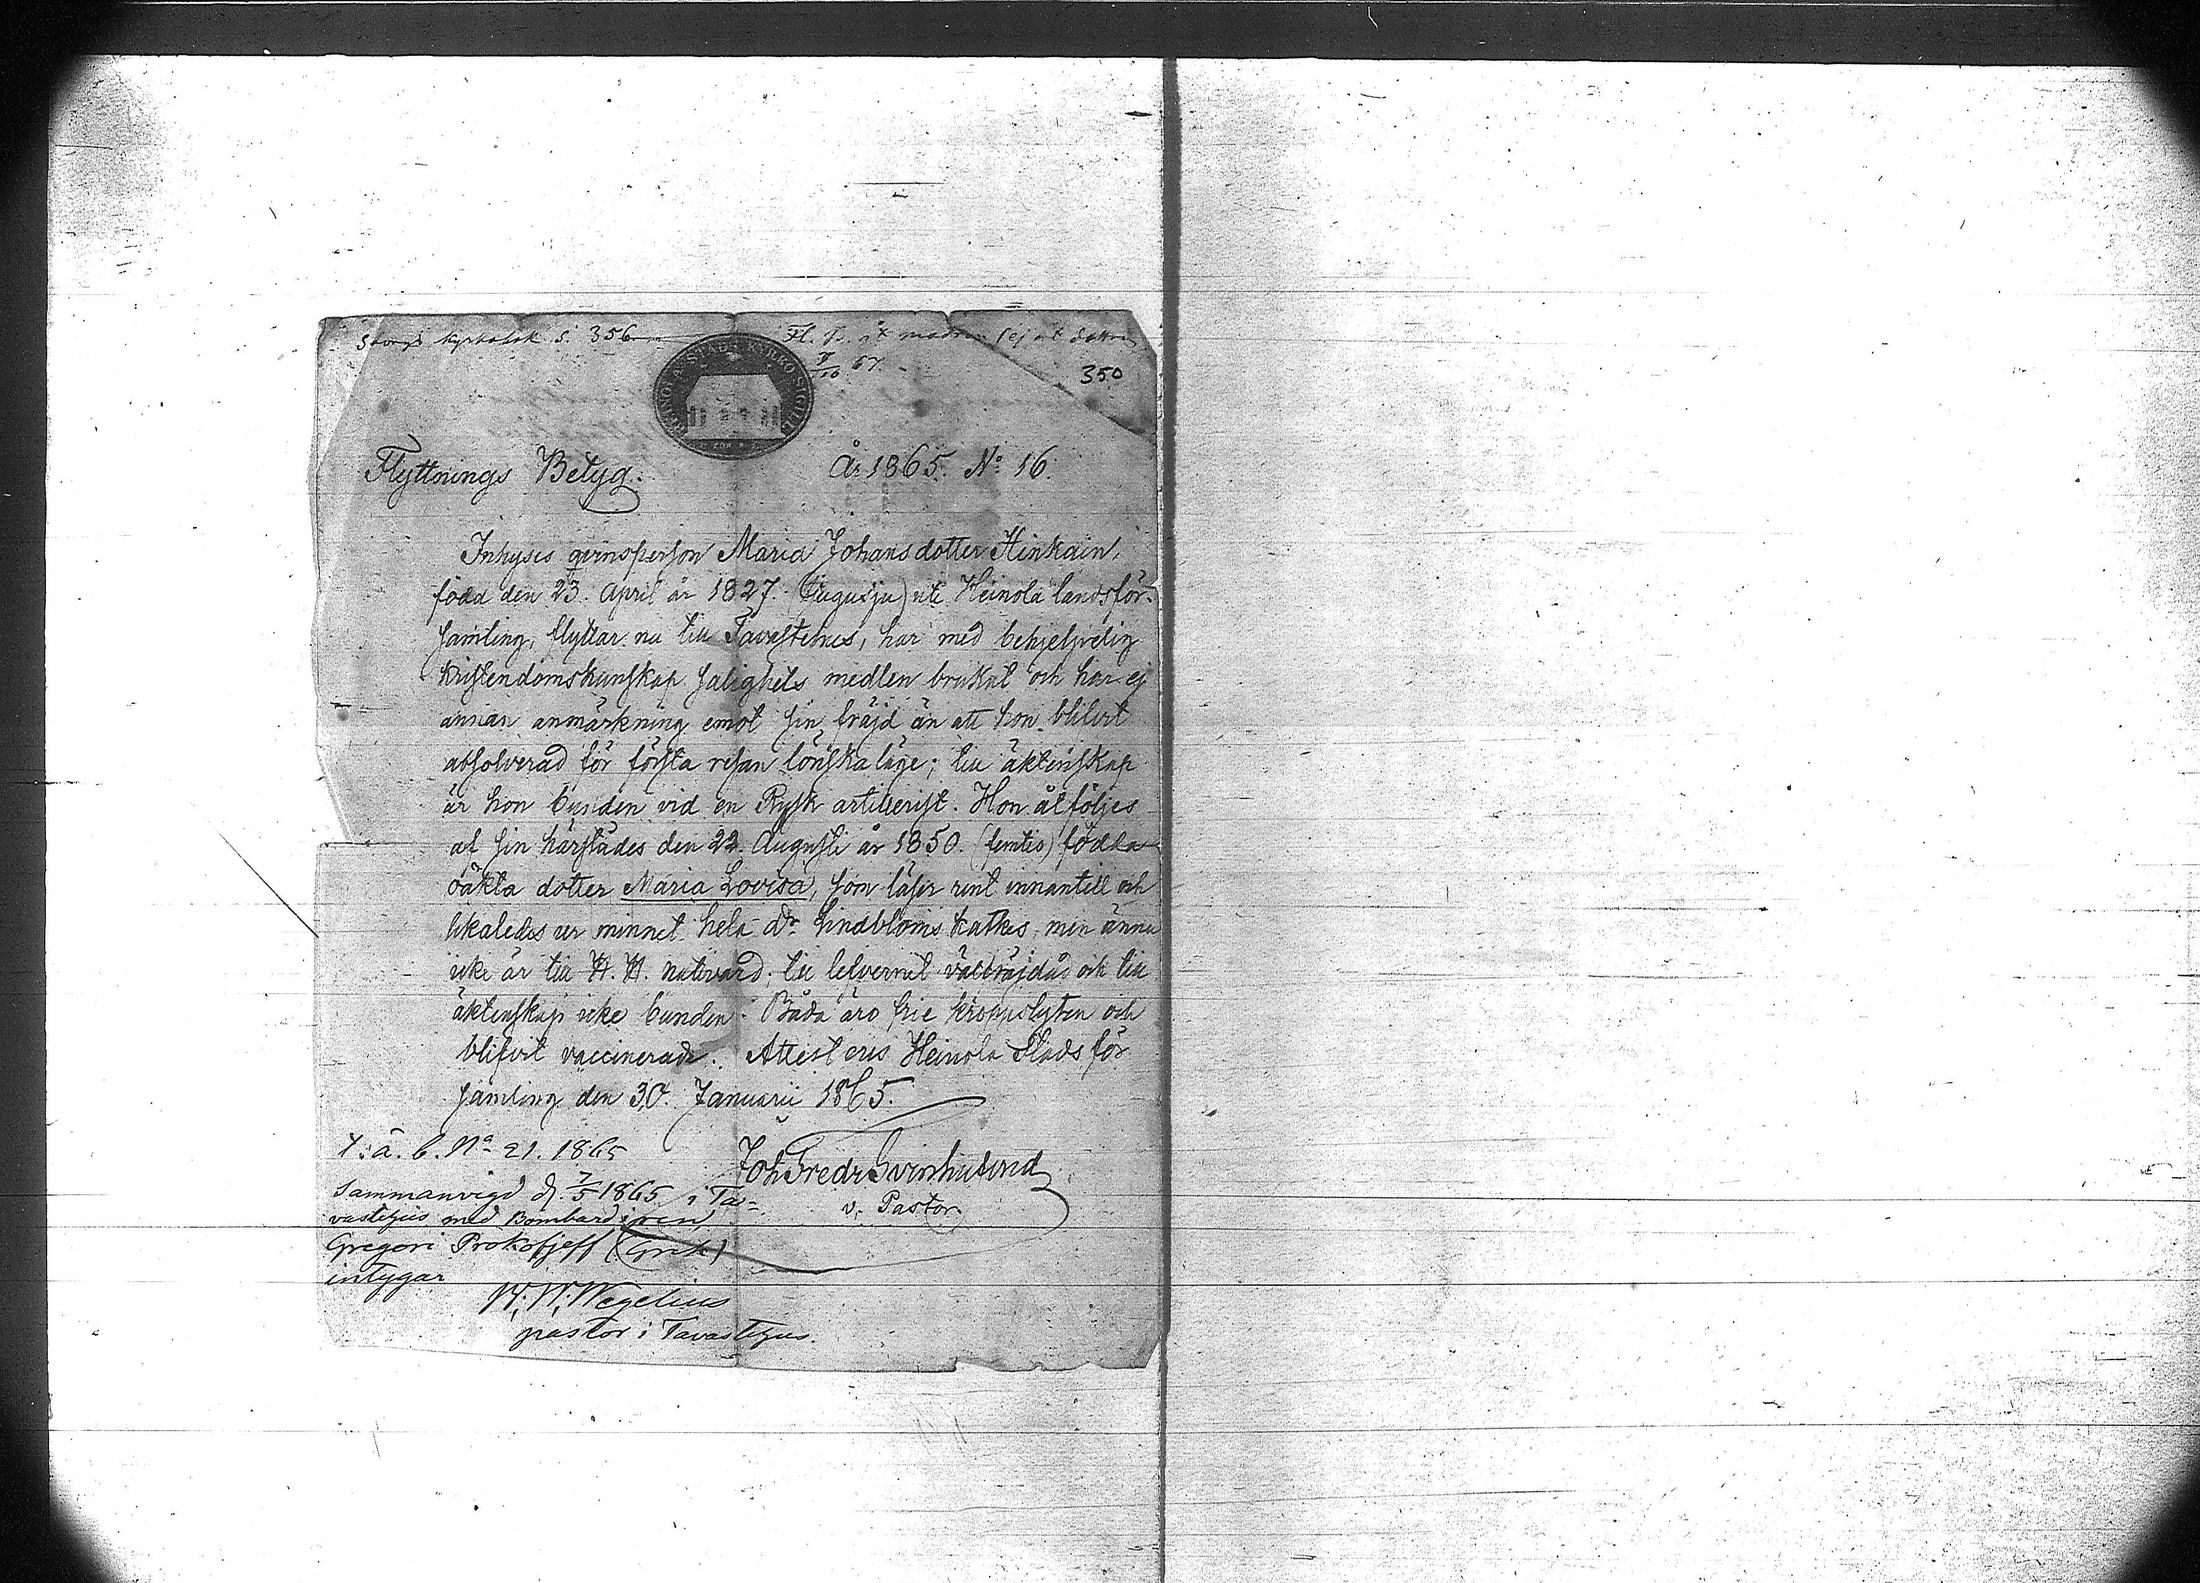 kyrkobok S. 356
Fl. B. åt modren (ej åt dottren)
67.
350
HEINOLA STADS KYRKO SIGILL
Flyttnings Betyg.
År 1865. No 16.
Inhyses qvinsperson Maria Johansdotter Hinkain,
född den 23. April år 1827. (tjugusju) uti Heinola landsför-
samling, flyttar nu till Tavastehus, har med behjelpelig
kristendomskunskap salighets medlen brukat och har ej
annan anmärkning emot sin fräjd än att hon blifvit
absolverad för första resan lönskaläge; till äktenskap
är hon bunden vid en Rysk artillerist. Hon åtföljes
af sin härstädes den 22. Augusti år 1850. (femtio) födda
oäkta dotter Maria Lovisa, som läser rent innantill och
likaledes ur minnet hela Dr. Lindbloms katkes, men ännu
icke är till H. H. nattvard, till lefvernet välfräjdad och till
äktenskap icke bunden. Båda äro frie kroppslyten och
blifvit vaccinerade. Attesteras Heinola Stads för
samling den 30. Januarii 1865.
T. a. b. No 21. 1865
Joh Fredr Svinhufvud
v. Pastor.
Sammanvigd d. 7/5 1865 i Ta-
vastehus med Bombardiren
Gregori Prokofjeff (Grek)
intygar
W. W. Wegelius
pastor i Tavastehus.